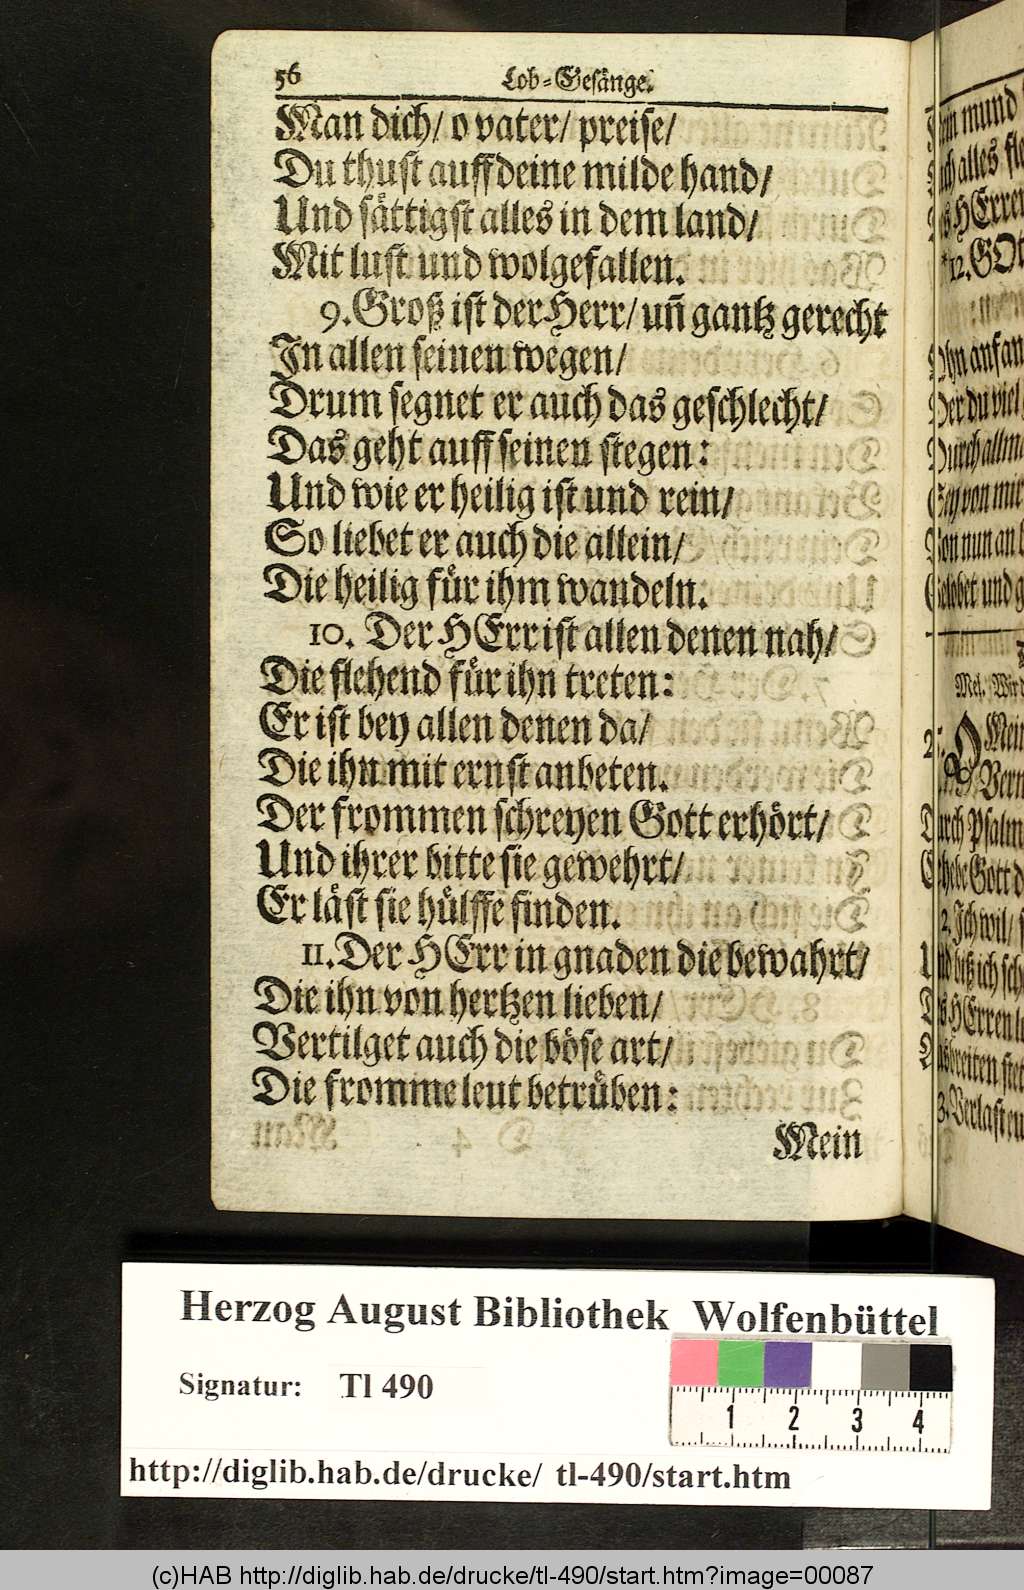 56 Lob-Gesänge.
Man dich/ o vater/ preise/
Du thust auff deine milde hand/
Und sättigst alles in dem land/
Mit lust und wolgefallen.
9. Groß ist der Herr/ uñ gantz gerecht
In allen seinen wegen/
Drum segnet er auch das geschlecht/
Das geht auff seinen stegen:
Und wie er heilig ist und rein/
So liebet er auch die allein/
Die heilig für ihm wandeln.
10. Der HErr ist allen denen nah/
Die flehend für ihn treten:
Er ist bey allen denen da/
Die ihn mit ernst anbeten.
Der frommen schreyen Gott erhört/
Und ihrer bitte sie gewehrt/
Er läst sie hülffe finden.
11. Der HErr in gnaden die bewahrt/
Die ihn von hertzen lieben/
Vertilget auch die böse art/
Die fromme leut betrüben:
Mein
mund
alles
HErren
12. GOt
anfan
Der du viel
Durch allm
Sey von mir
Von nun an
Gelobet und
Mel. Wird
Mein
Durch Psalm
Erhebe Gott
2. Ich wil/
Und biß ich
Des HErren
Ausbreiten stet
3. Verlast
Herzog August Bibliothek Wolfenbüttel
Signatur: Tl 490
1 2 3 4
http://diglib.hab.de/drucke/ tl-490/start.htm
(c)HAB http://diglib.hab.de/drucke/tl-490/start.htm?image=00087